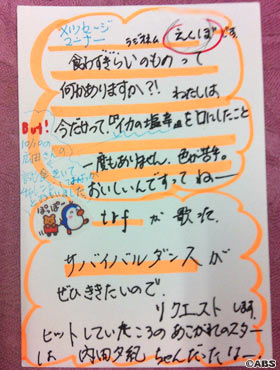 メッセージ
コーナー
ラジオネーム えんぼ です
食わずぎらいのもの って
何かありますか?! わたしは、
今だせって、『イカの塩辛』を口にしたこと
一度もありません。色が苦手。
おいしいんですってねー
But!
10/10の
ぽっぽー
trf が 歌って、
サバイバルダンス が
ぜひききたいので、
リクエスト します。
ヒットしていたころの あこがれのスター
は 内田夕紀 ちゃんだったなー
©ABS